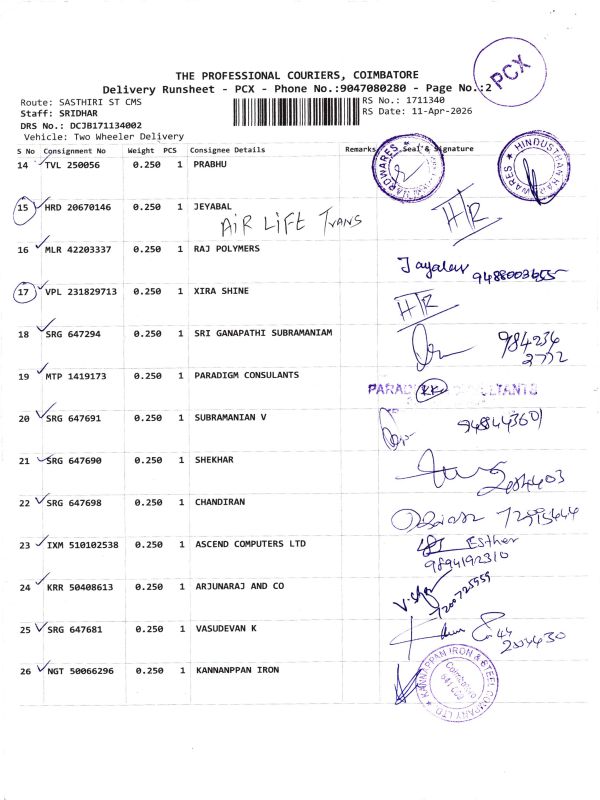 PCX
THE PROFESSIONAL COURIERS, COIMBATORE
Delivery Runsheet - PCX - Phone No.:9047080280 - Page No.:2
Route: SASTHIRI ST CMS
RS No.: 1711340
Staff: SRIDHAR
RS Date: 11-Apr-2026
DRS No.: DCJB171134002
Vehicle: Two Wheeler Delivery
S No Consignment No Weight PCS Consignee Details Remarks Seal & Signature
14 TVL 250056 0.250 1 PRABHU
HINDUSTHAN HARDWARES
15 HRD 20670146 0.250 1 JEYABAL
AIR LIFT TRANS
16 MLR 42203337 0.250 1 RAJ POLYMERS
17 VPL 231829713 0.250 1 XIRA SHINE
18 SRG 647294 0.250 1 SRI GANAPATHI SUBRAMANIAM
984234
2772
19 MTP 1419173 0.250 1 PARADIGM CONSULANTS
20 SRG 647691 0.250 1 SUBRAMANIAN V
21 SRG 647690 0.250 1 SHEKHAR
22 SRG 647698 0.250 1 CHANDIRAN
23 IXM 510102538 0.250 1 ASCEND COMPUTERS LTD
Esther
9894192310
24 KRR 50408613 0.250 1 ARJUNARAJ AND CO
25 SRG 647681 0.250 1 VASUDEVAN K
26 NGT 50066296 0.250 1 KANNANPPAN IRON
KANNAPPAN IRON & STEEL COMPANY LTD
Coimbatore